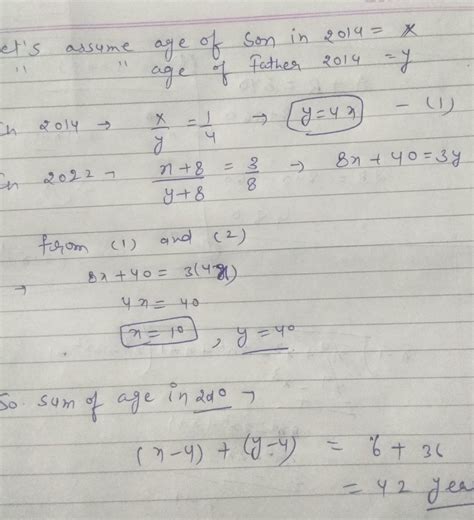 et's assume age of son in 2014 = x
" " age of Father 2014 = y
In 2014 → x/y = 1/4 → y=4x - (1)
In 2022 → x+8/y+8 = 3/8 → 8x+40=3y
from (1) and (2)
→ 8x+40 = 3(4x)
4x = 40
x=10 , y=40
So sum of age in 2010 →
(x-4) + (y-4) = 6 + 36
= 42 year